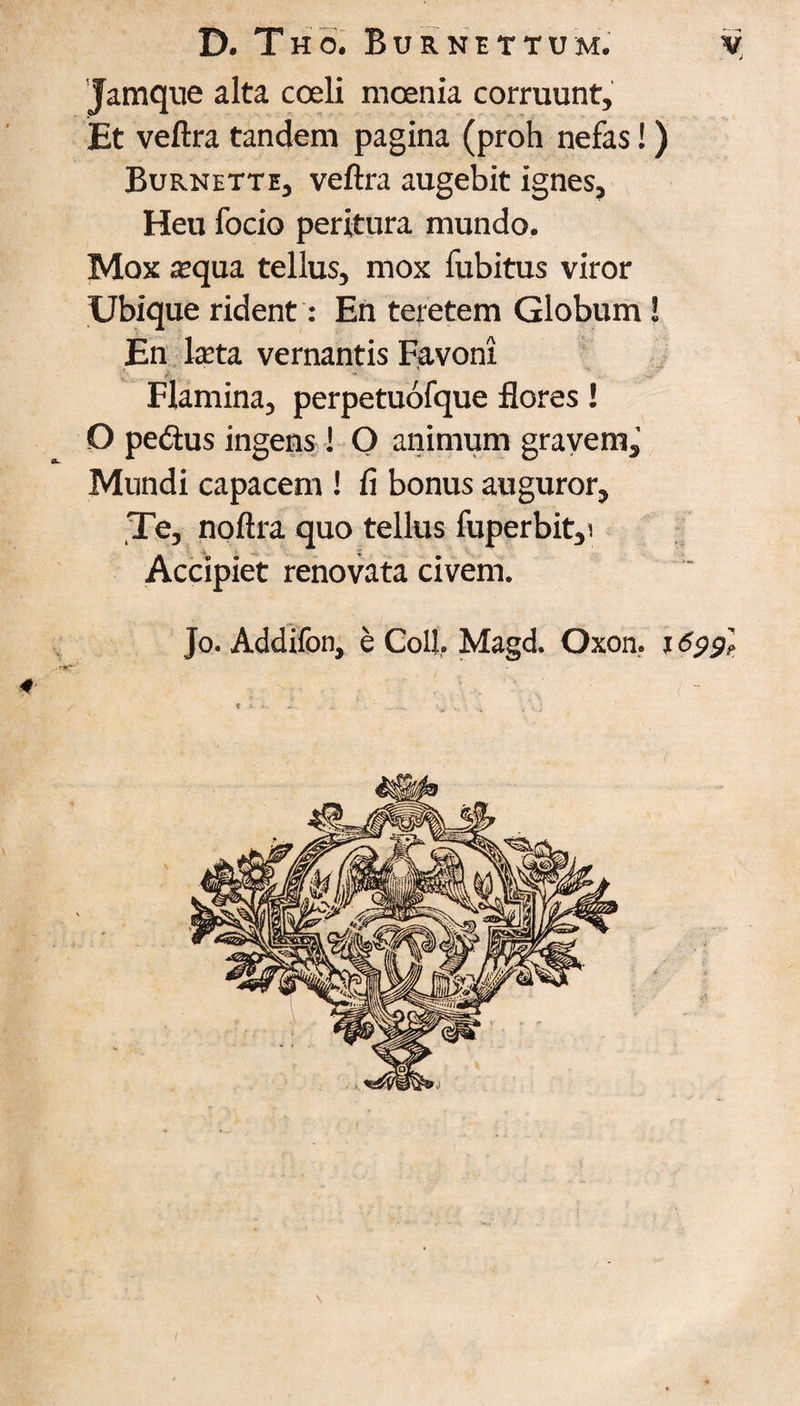 D. Tho. Burnettum. v
Jamque alta cœli mœnia corruunt,
Et veſtra tandem pagina (proh nefas!)
Burnette, veſtra augebit ignes,
Heu ſocio peritura mundo.
Mox æqua tellus, mox ſubitus viror
Ubique rident: En teretem Globum!
En læta vernantis Favonî
Flamina, perpetuóſque flores!
O pectus ingens! O animum gravem,
Mundi capacem! ſi bonus auguror,
Te, noſtra quo tellus ſuperbit,
Accipiet renovata civem.
Jo. Addiſon, è Coll. Magd. Oxon. 1699.